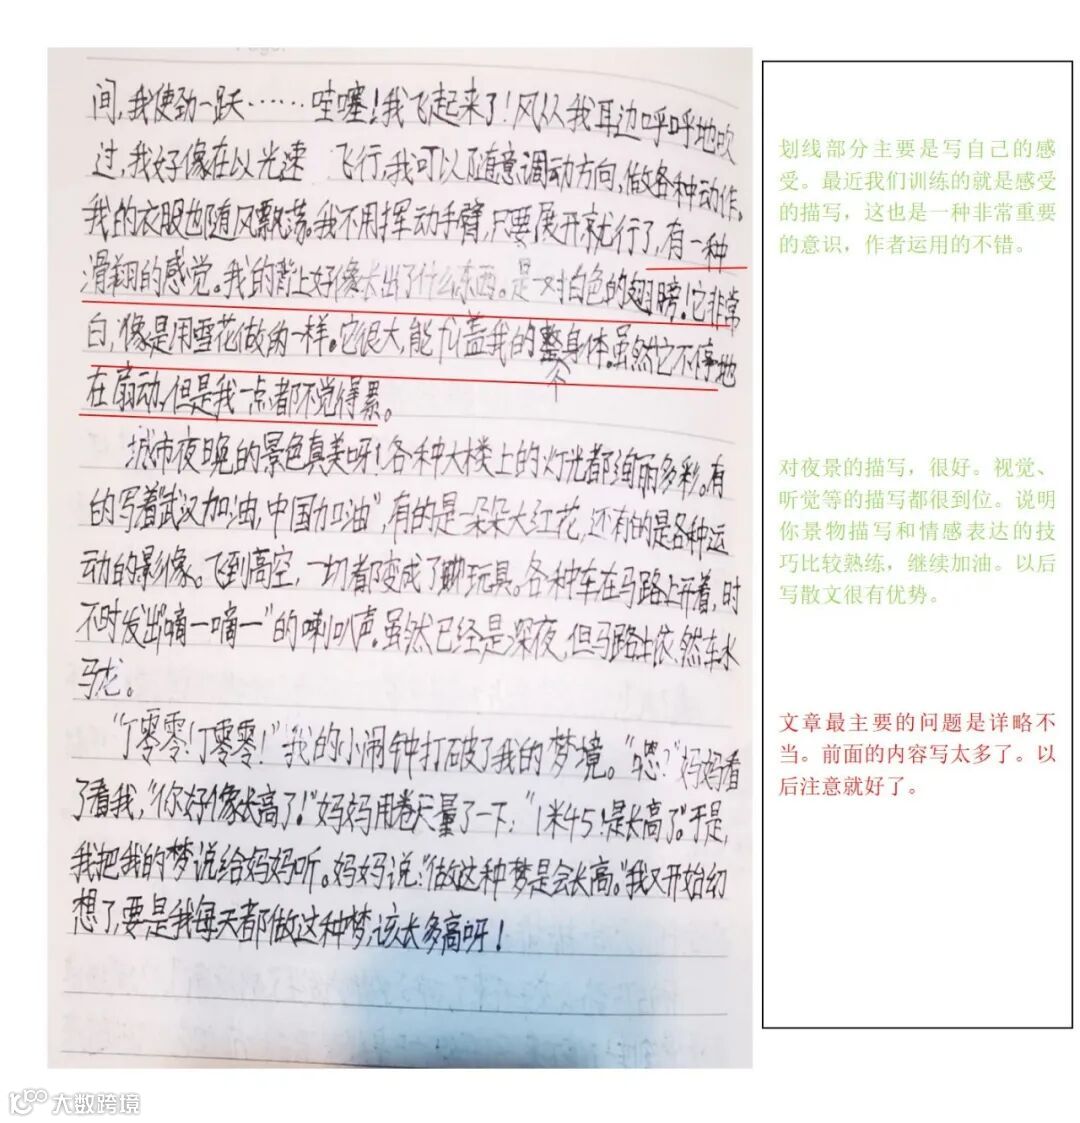 间,我使劲一跃……哇噻!我飞起来了!风从我耳边呼呼地吹
过,我好像在以光速 飞行,我可以随意调动方向,做各种动作。
我的衣服也随风飘荡。我不用挥动手臂,只要展开就行了,有一种
滑翔的感觉。我的背上好像长出了什么东西。是一对白色的翅膀!它非常
白,像是用雪花做的一样。它很大,能覆盖我的整个身体。虽然它不停地
在扇动,但是我一点都不觉得累。
城市夜晚的景色真美呀!各种大楼上的灯光都绚丽多彩。有
的写着“武汉加油,中国加油”,有的是一朵朵大红花,还有的是各种运
动的影像。飞到高空,一切都变成了玩具。各种车在马路上开着,时
不时发出“嘀一嘀一”的喇叭声。虽然已经是深夜,但马路上依然车水
马龙。
“丁零零!丁零零!”我的小闹钟打破了我的梦境。“嗯?”妈妈看
了看我,“你好像长高了!”妈妈用卷尺量了一下,“1米45!是长高了。”于是,
我把我的梦说给妈妈听。妈妈说:“做这种梦是会长高。”我又开始幻
想了,要是我每天都做这种梦,该长多高呀!
划线部分主要是写自己的感
受。最近我们训练的就是感受
的描写，这也是一种非常重要
的意识，作者运用的不错。
对夜景的描写，很好。视觉、
听觉等的描写都很到位。说明
你景物描写和情感表达的技
巧比较熟练，继续加油。以后
写散文很有优势。
文章最主要的问题是详略不
当。前面的内容写太多了。以
后注意就好了。
大数跨境